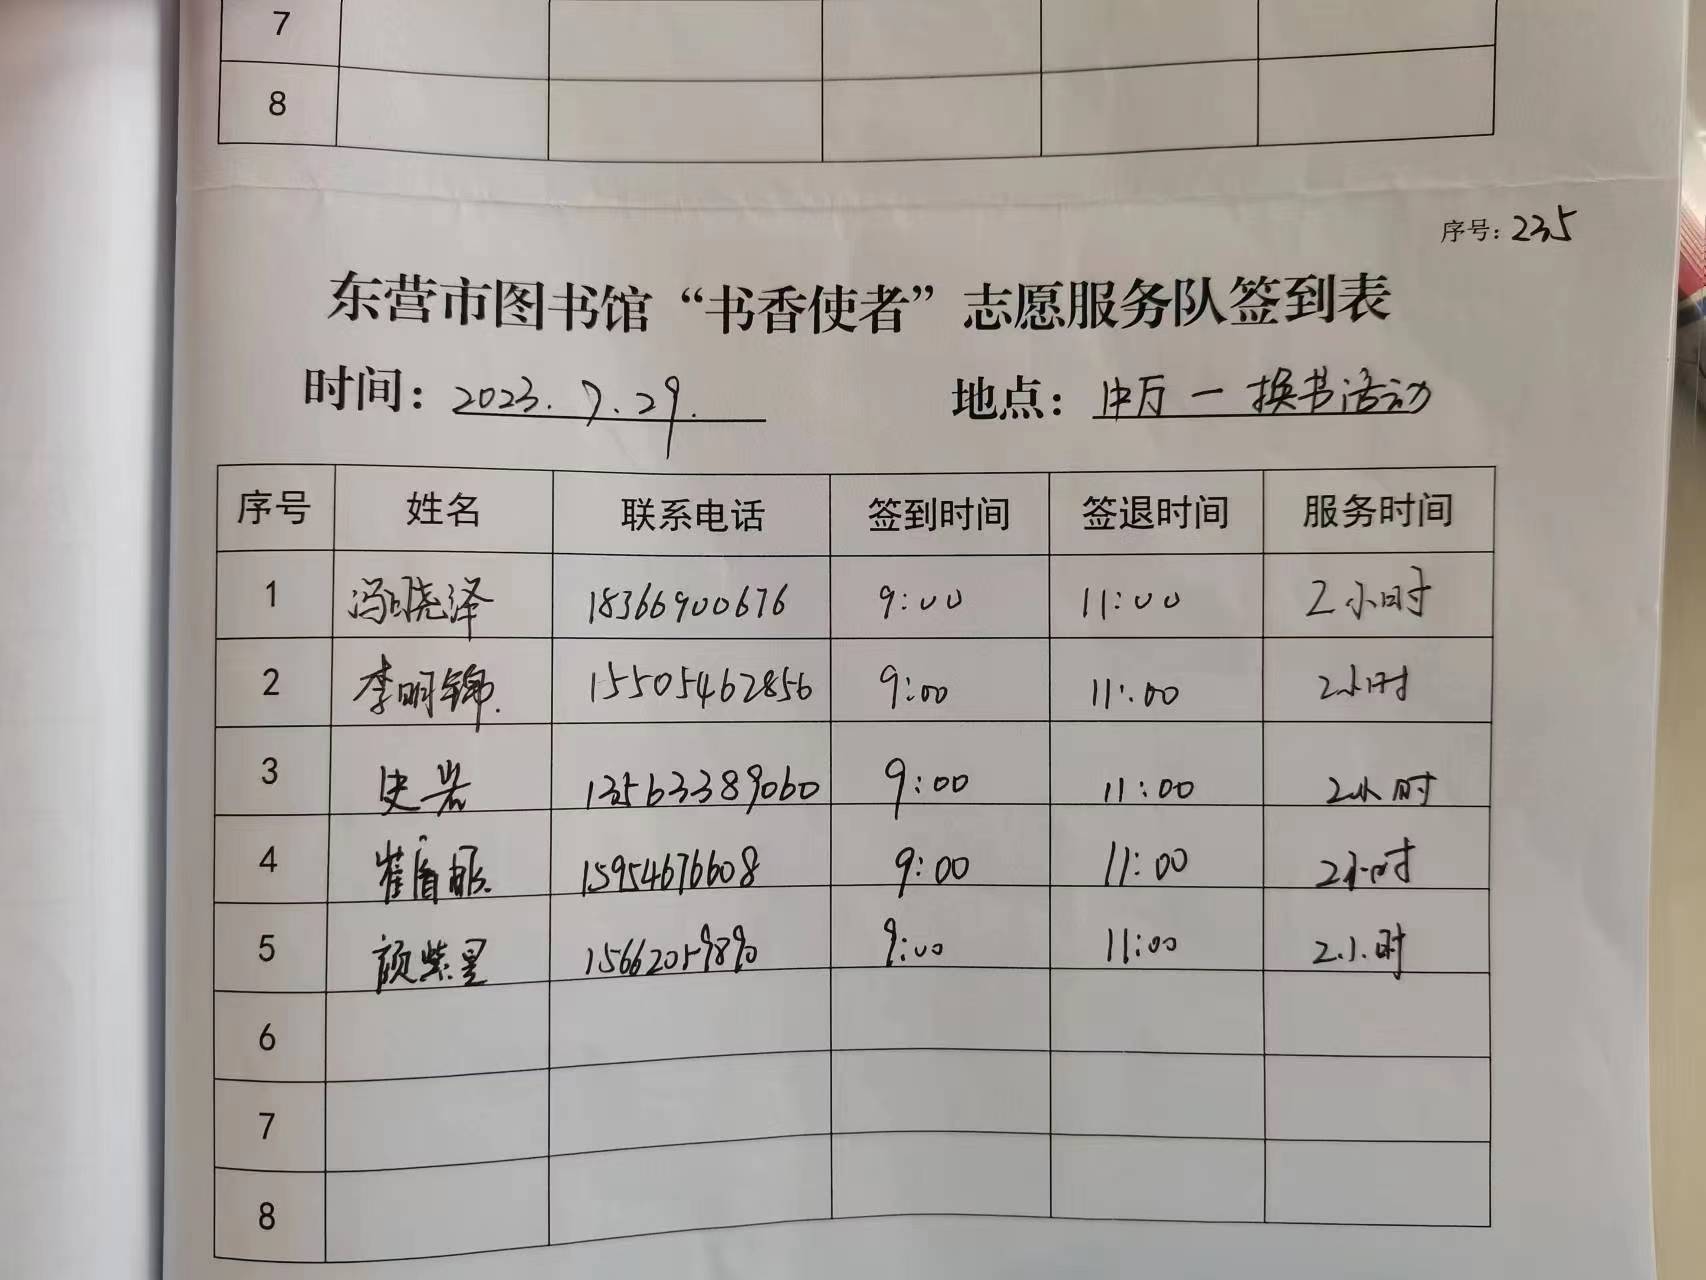 7
8
序号：235
东营市图书馆“书香使者”志愿服务队签到表
时间：2023.7.29. 地点：中厅一换书活动
序号 姓名 联系电话 签到时间 签退时间 服务时间
1 冯晓泽 18366900676 9:00 11:00 2小时
2 李明锦. 15505462856 9:00 11:00 2小时
3 史岩 13563389060 9:00 11:00 2小时
4 崔 15954676608 9:00 11:00 2小时
5 颜紫星 15662059890 9:00 11:00 2小时
6
7
8